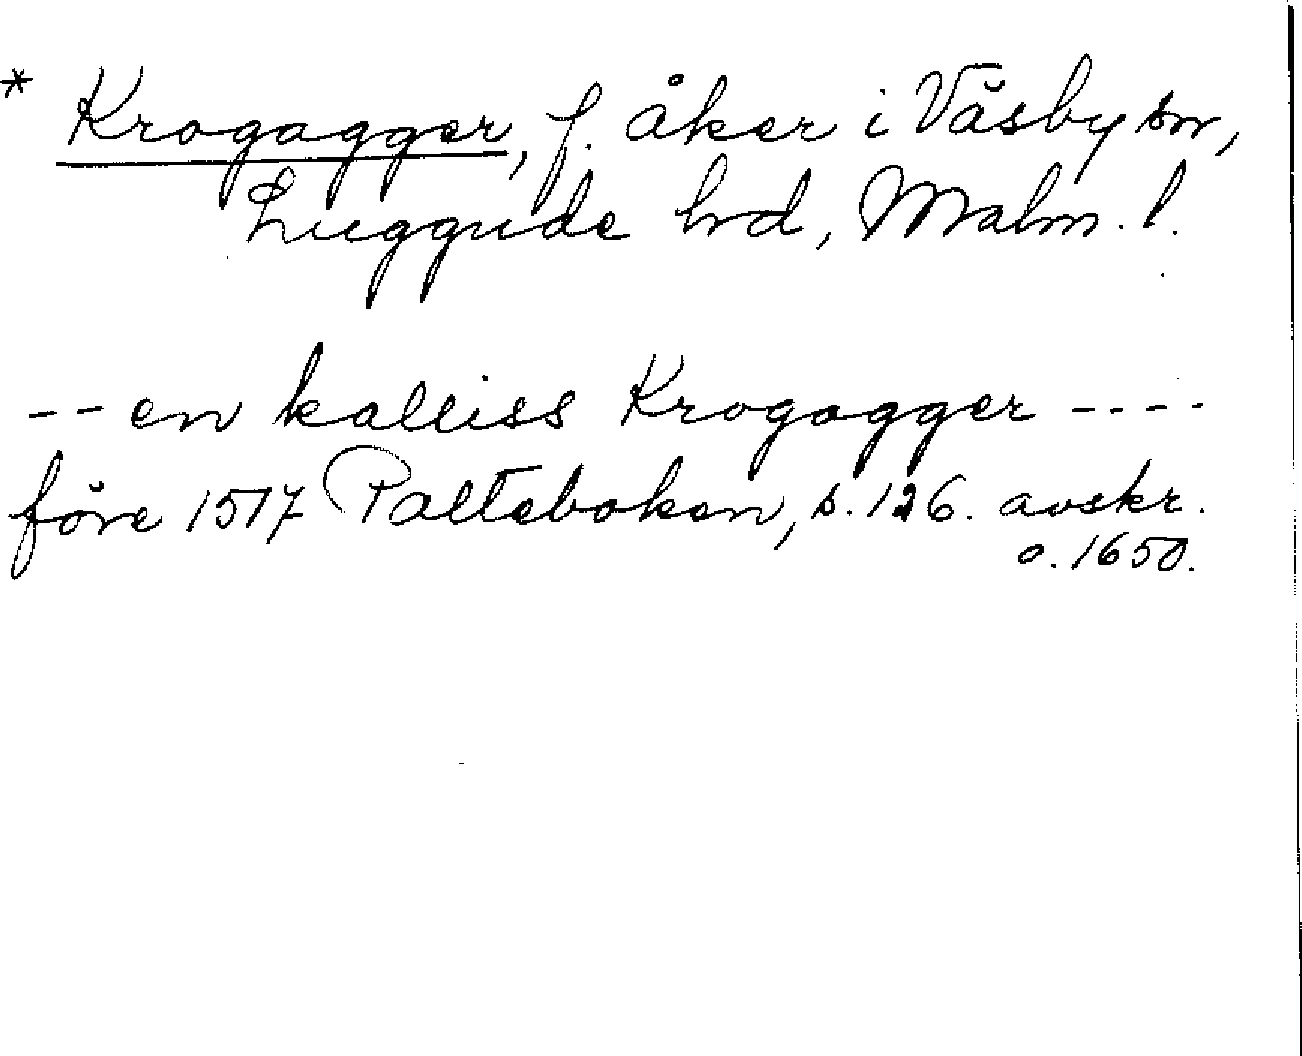 * Krogagger, f. åker i Väsby sn,
Luggude hrd, Malm. l.
-- en kalliss Krogagger ----
före 1517 Palteboken, s. 126. avskr.
o. 1650.